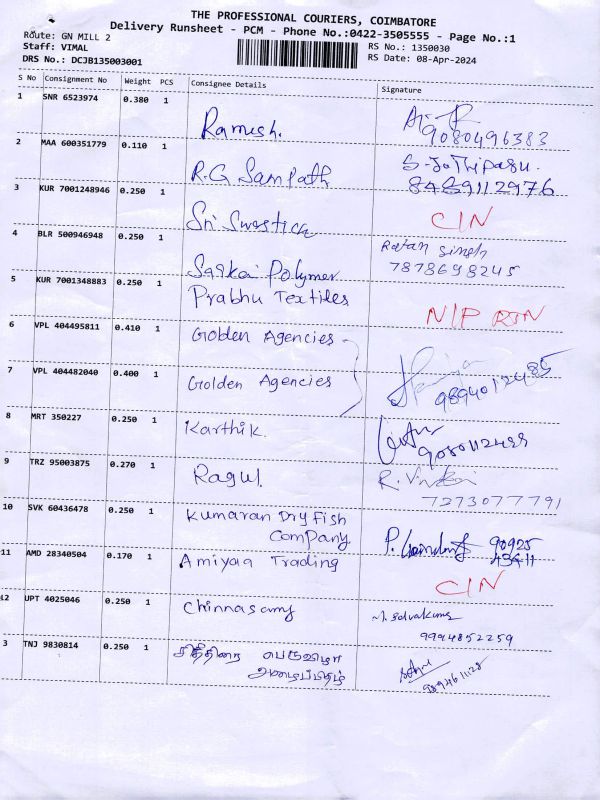 THE PROFESSIONAL COURIERS, COIMBATORE
Delivery Runsheet - PCM - Phone No.:0422-3505555 - Page No.:1
Route: GN MILL 2
Staff: VIMAL
DRS No.: DCJB135003001
RS No.: 1350030
RS Date: 08-Apr-2024
S No Consignment No Weight PCS Consignee Details Signature
1 SNR 6523974 0.380 1 Ramesh.
9080496383
2 MAA 600351779 0.110 1 R.G Sampath S. Jothipasu.
8489112976
3 KUR 7001248946 0.250 1 Sri Swastick CIN
4 BLR 500946948 0.250 1 Saskai Polymer Ratan Singh
7878698245
5 KUR 7001348883 0.250 1 Prabhu Textiles N/P RTN
6 VPL 404495811 0.410 1 Golden Agencies
7 VPL 404482040 0.400 1 Golden Agencies
9894012485
8 MRT 350227 0.250 1 Karthik.
9 TRZ 95003875 0.270 1 Ragul.
7273077791
10 SVK 60436478 0.250 1 Kumaran Dry Fish
Company 90925
43411
11 AMD 28340504 0.170 1 Amiyaa Trading CIN
12 UPT 4025046 0.250 1 Chinnasamy M. Selvakumar
9994852259
3 TNJ 9830814 0.250 1 சித்திரை பெருவிழா
அழைப்பிதழ்
9894611128